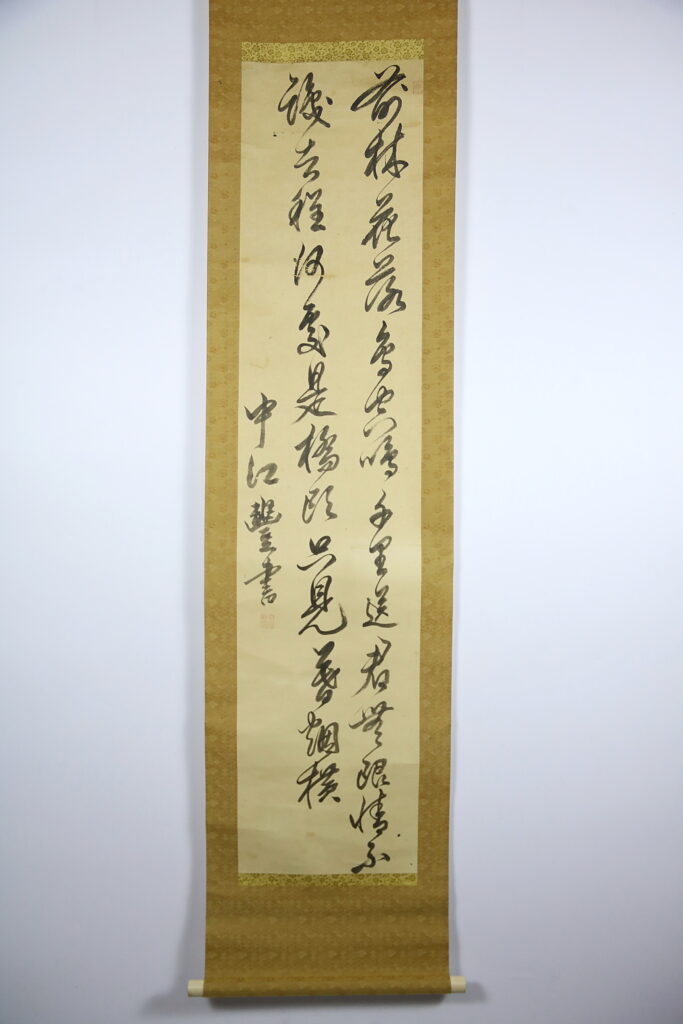 前林花落鳥空鳴千里送君無限情不
識去程何處是橋頭只見暮烟橫
中江豐書